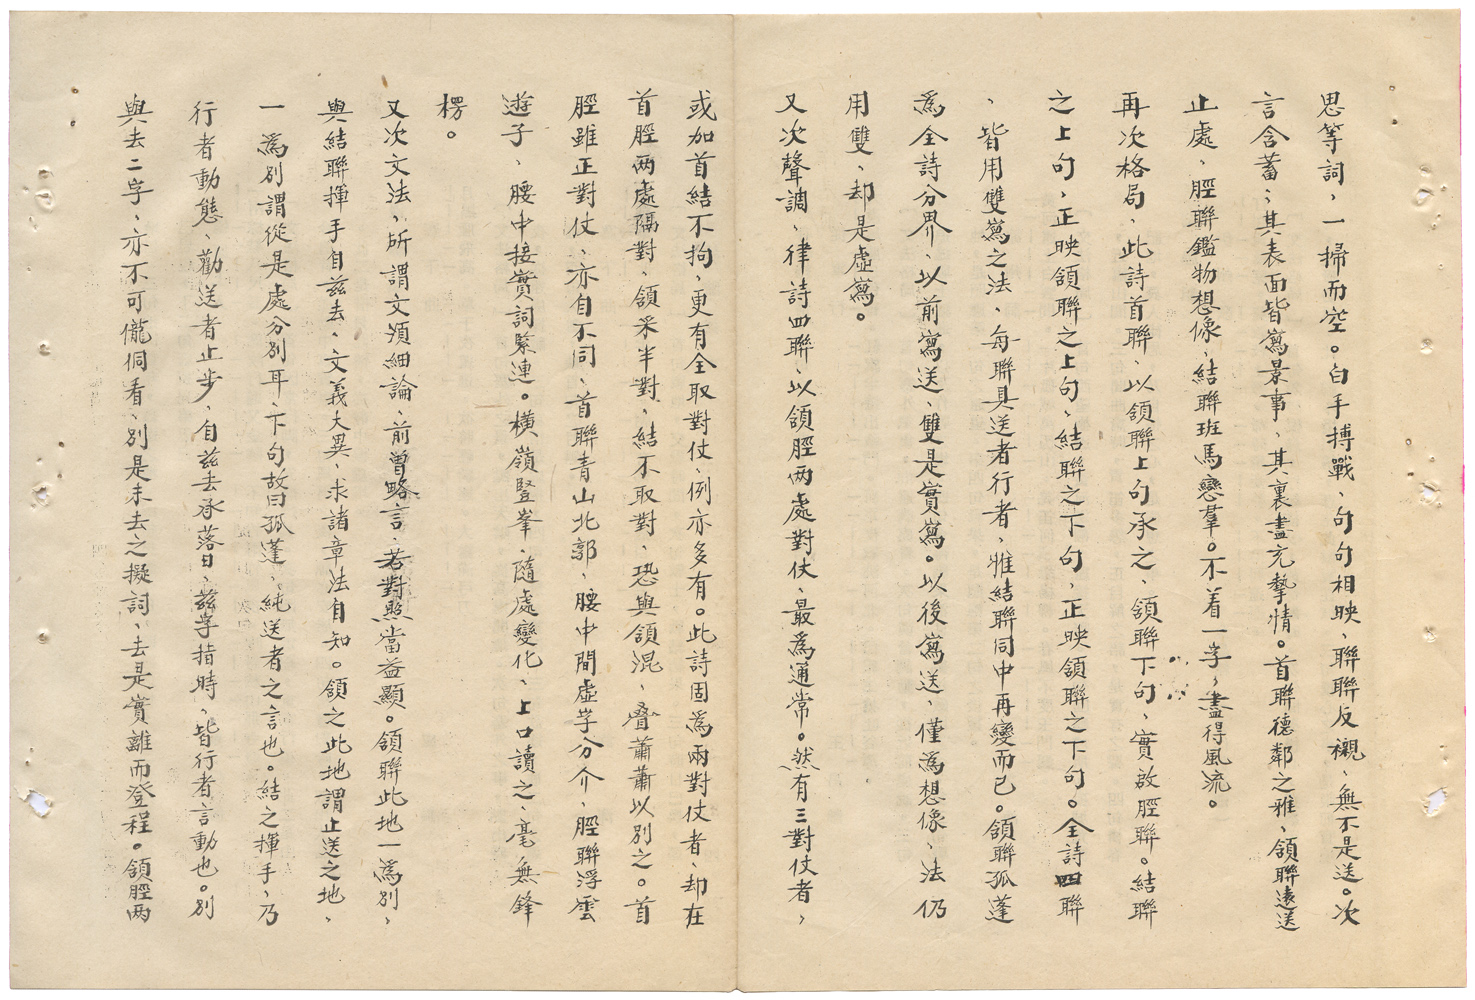 思等詞，一掃而空。白手搏戰、句句相映、聯聯反襯、無不是送。次
言含蓄；其表面皆寫景事、其裏盡充摯情。首聯德鄰之雅、領聯遠送
止處、脛聯鑑物想像、結聯班馬戀羣。不着一字，盡得風流。
再次格局，此詩首聯、以領聯上句承之、領聯下句、實啟脛聯。結聯
之上句，正映領聯之上句、結聯之下句，正映領聯之下句。全詩四聯
、皆用雙寫之法、每聯具送者行者，惟結聯同中再變而已。領聯孤蓬
為全詩分界、以前寫送、雙是實寫。以後寫送、僅為想像、法仍
用雙、却是虛寫。
又次聲調、律詩四聯、以領脛两處對仗、最為通常。然有三對仗者，
或加首結不拘、更有全取對仗、例亦多有。此詩固為兩對仗者、却在
首脛两處隔對、領采半對、結不取對、恐與領混、叠蕭蕭以別之。首
脛雖正對仗、亦自不同、首聯青山北郭、腰中間虛字分介、脛聯浮雲
遊子、腰中接實詞緊連。橫嶺豎峯、隨處變化、上口讀之、毫無鋒
楞。
又次文法、所謂文須細論、前曾略言、若對照當益顯。領聯此地一為別，
與結聯揮手自兹去、文義大異、求諸章法自知。領之此地謂止送之地，
一為別謂從是處分別耳、下句故曰孤蓬、純送者之言也。結之揮手、乃
行者動態、勸送者止步、自兹去承落日、兹字指時、皆行者言動也。別
與去二字、亦不可儱侗看、別是未去之擬詞、去是實離而登程。領脛两